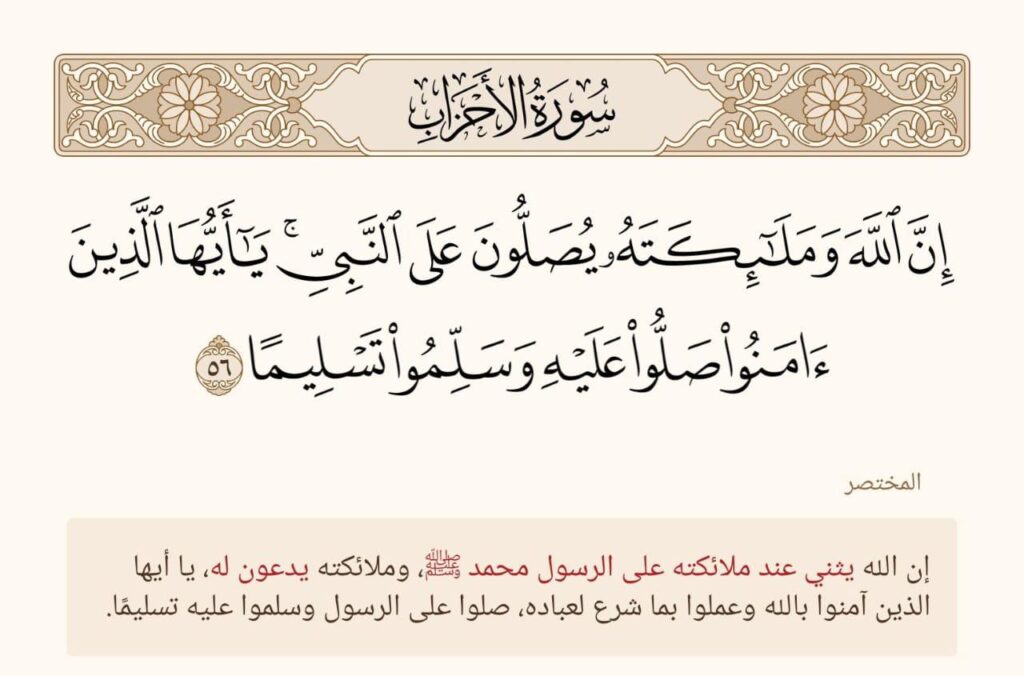 سُورَةُ الأَحْزَابِ
إِنَّ ٱللَّهَ وَمَلَـٰٓئِكَتَهُۥ يُصَلُّونَ عَلَى ٱلنَّبِىِّ ۚ يَـٰٓأَيُّهَا ٱلَّذِينَ
ءَامَنُوا۟ صَلُّوا۟ عَلَيْهِ وَسَلِّمُوا۟ تَسْلِيمًا ٥٦
المختصر
إن الله يثني عند ملائكته على الرسول محمد ﷺ، وملائكته يدعون له، يا أيها
الذين آمنوا بالله وعملوا بما شرع لعباده، صلوا على الرسول وسلموا عليه تسليمًا.